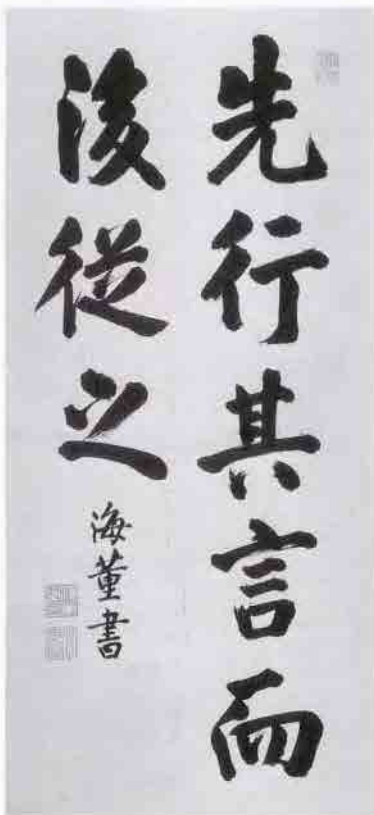 先行其言而
後従之
海董書